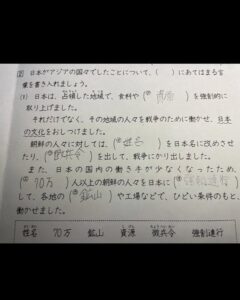 2 日本がアジアの国々でしたことについて、( )にあてはまる言
葉を書き入れましょう。
(1) 日本は、占領した地域で、食料や(① 資源 )を強制的に
取り上げました。
それだけでなく、その地域の人々を戦争のために働かせ、日本
の文化をおしつけました。
朝鮮の人々に対しては、(② 姓名 )を日本名に改めさせ
たり、(③ 徴兵令 )を出して、戦争にかり出しました。
また、日本の国内の働き手が少なくなったため、
(④ 70万 )人以上の朝鮮の人々を日本に(⑤ 強制連行 )
して、各地の(⑥ 鉱山 )や工場などで、ひどい条件のもと
働かせました。
姓名 70万 鉱山 資源 徴兵令 強制連行